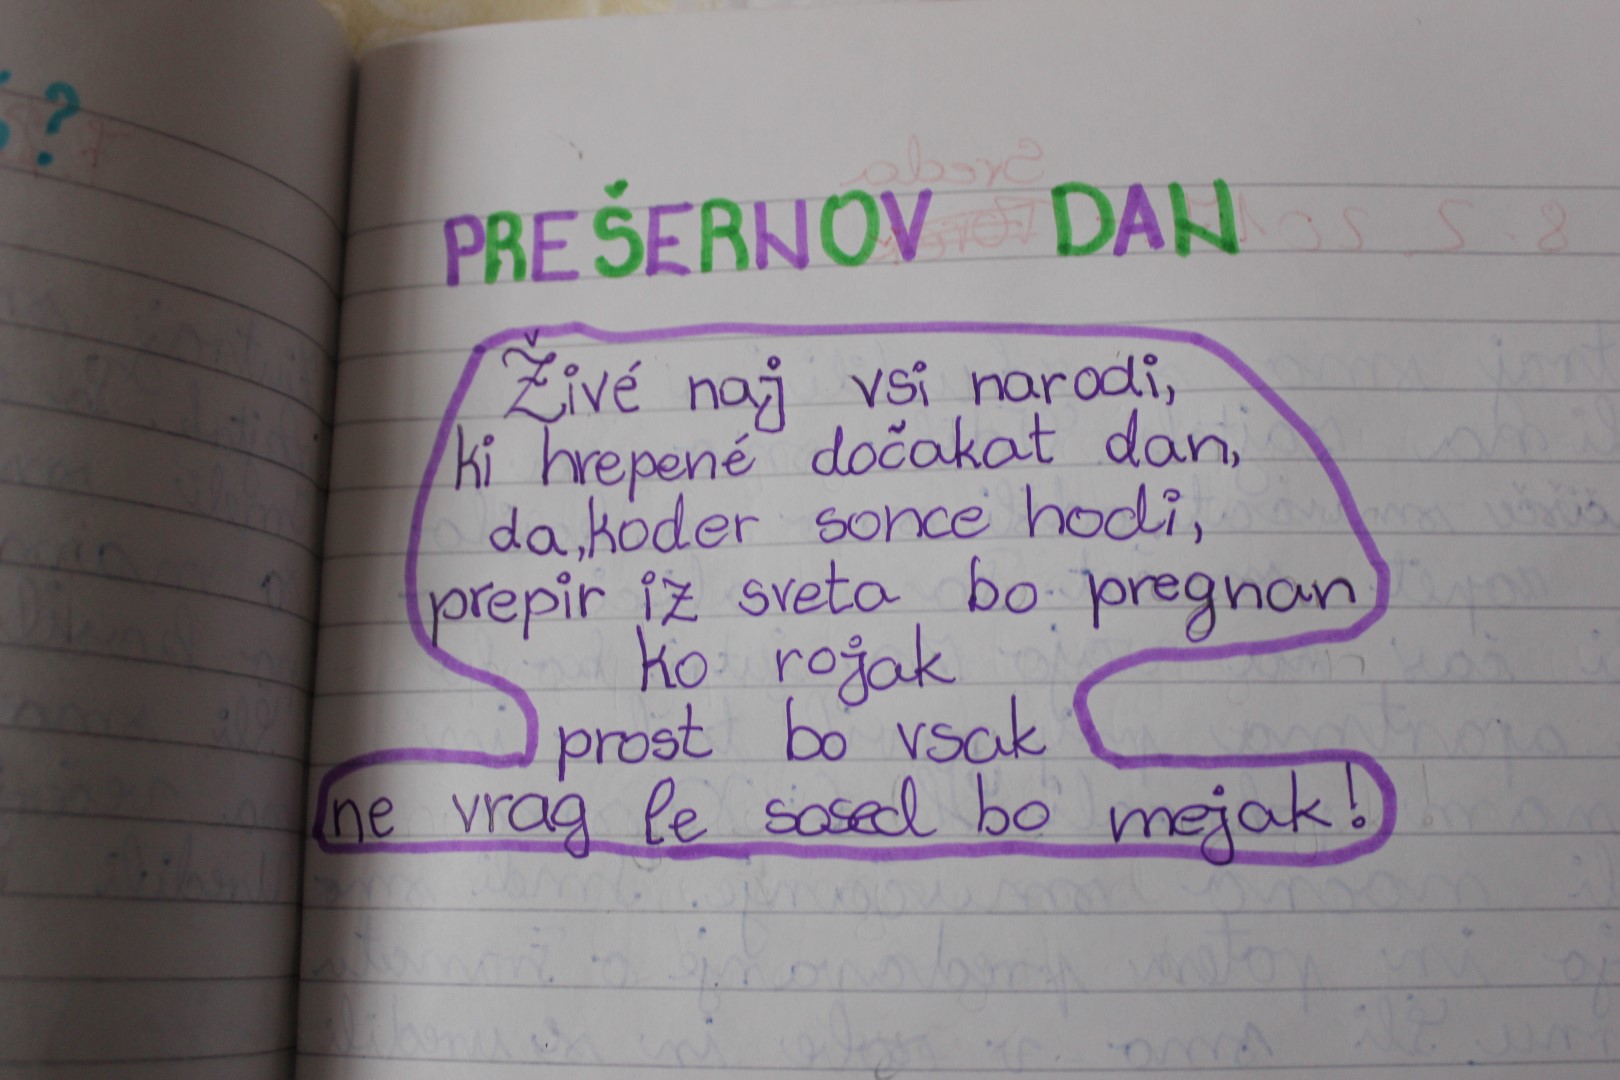 PREŠERNOV DAN
Živé naj vsi narodi,
ki hrepené dočakat dan,
da,koder sonce hodi,
prepir iz sveta bo pregnan
ko rojak
prost bo vsak
ne vrag le sosed bo mejak!